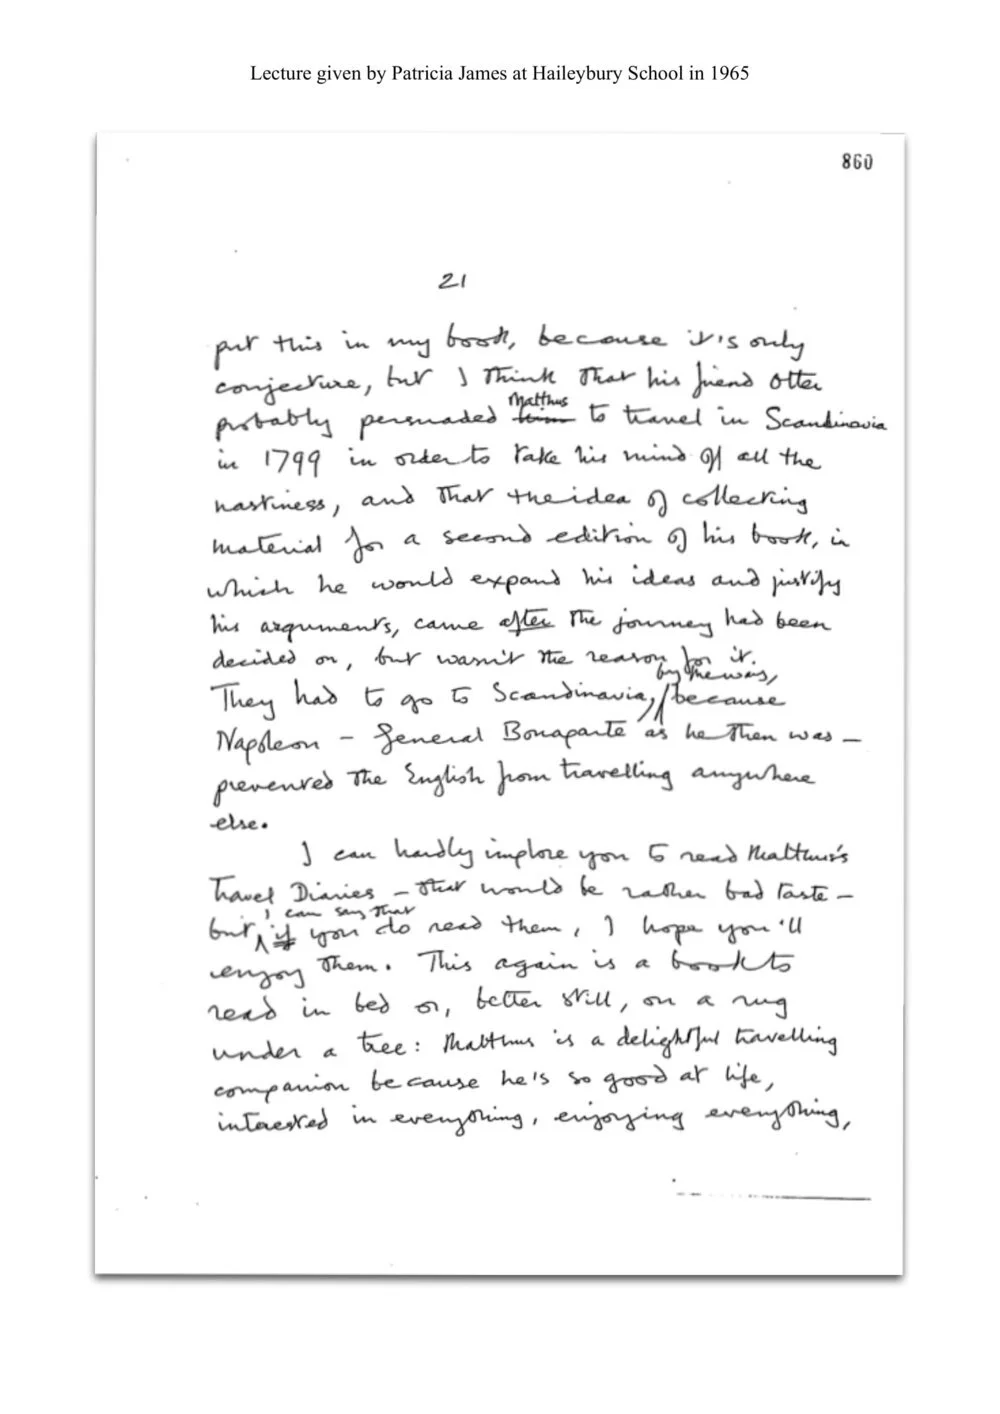 Lecture given by Patricia James at Haileybury School in 1965
860
21
put this in my book, because it's only
conjecture, but I think that his friend Otter
probably persuaded him Malthus to travel in Scandinavia
in 1799 in order to take his mind off all the
nastiness, and that the idea of collecting
material for a second edition of his book, in
which he would expand his ideas and justify
his arguments, came after the journey had been
decided on, but wasn't the reason for it.
They had to go to Scandinavia, by the way, because
Napoleon – General Bonaparte as he then was –
prevented the English from travelling anywhere
else.
I can hardly implore you to read Malthus's
Travel Diaries – that would be rather bad taste –
but I can say that if you do read them, I hope you'll
enjoy them. This again is a book to
read in bed or, better still, on a rug
under a tree: Malthus is a delightful travelling
companion because he's so good at life,
interested in everything, enjoying everything,